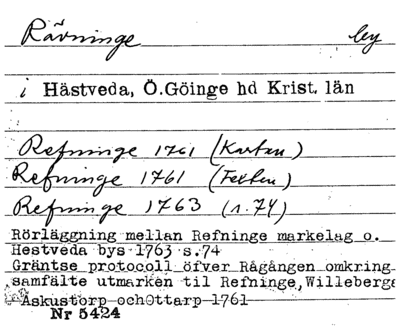 Rävninge by
i Hästveda, Ö.Göinge hd Krist. län
Refninge 1761 (Kartan)
Refninge 1761 (Texten)
Refninge 1763 (s.74)
Rörläggning mellan Refninge markelag o.
Hestveda bys 1763 s.74
Gräntse protocoll öfver Rågången omkring
samfälte utmarken til Refninge, Willeberga
Askustorp och Ottarp 1761
Nr 5424